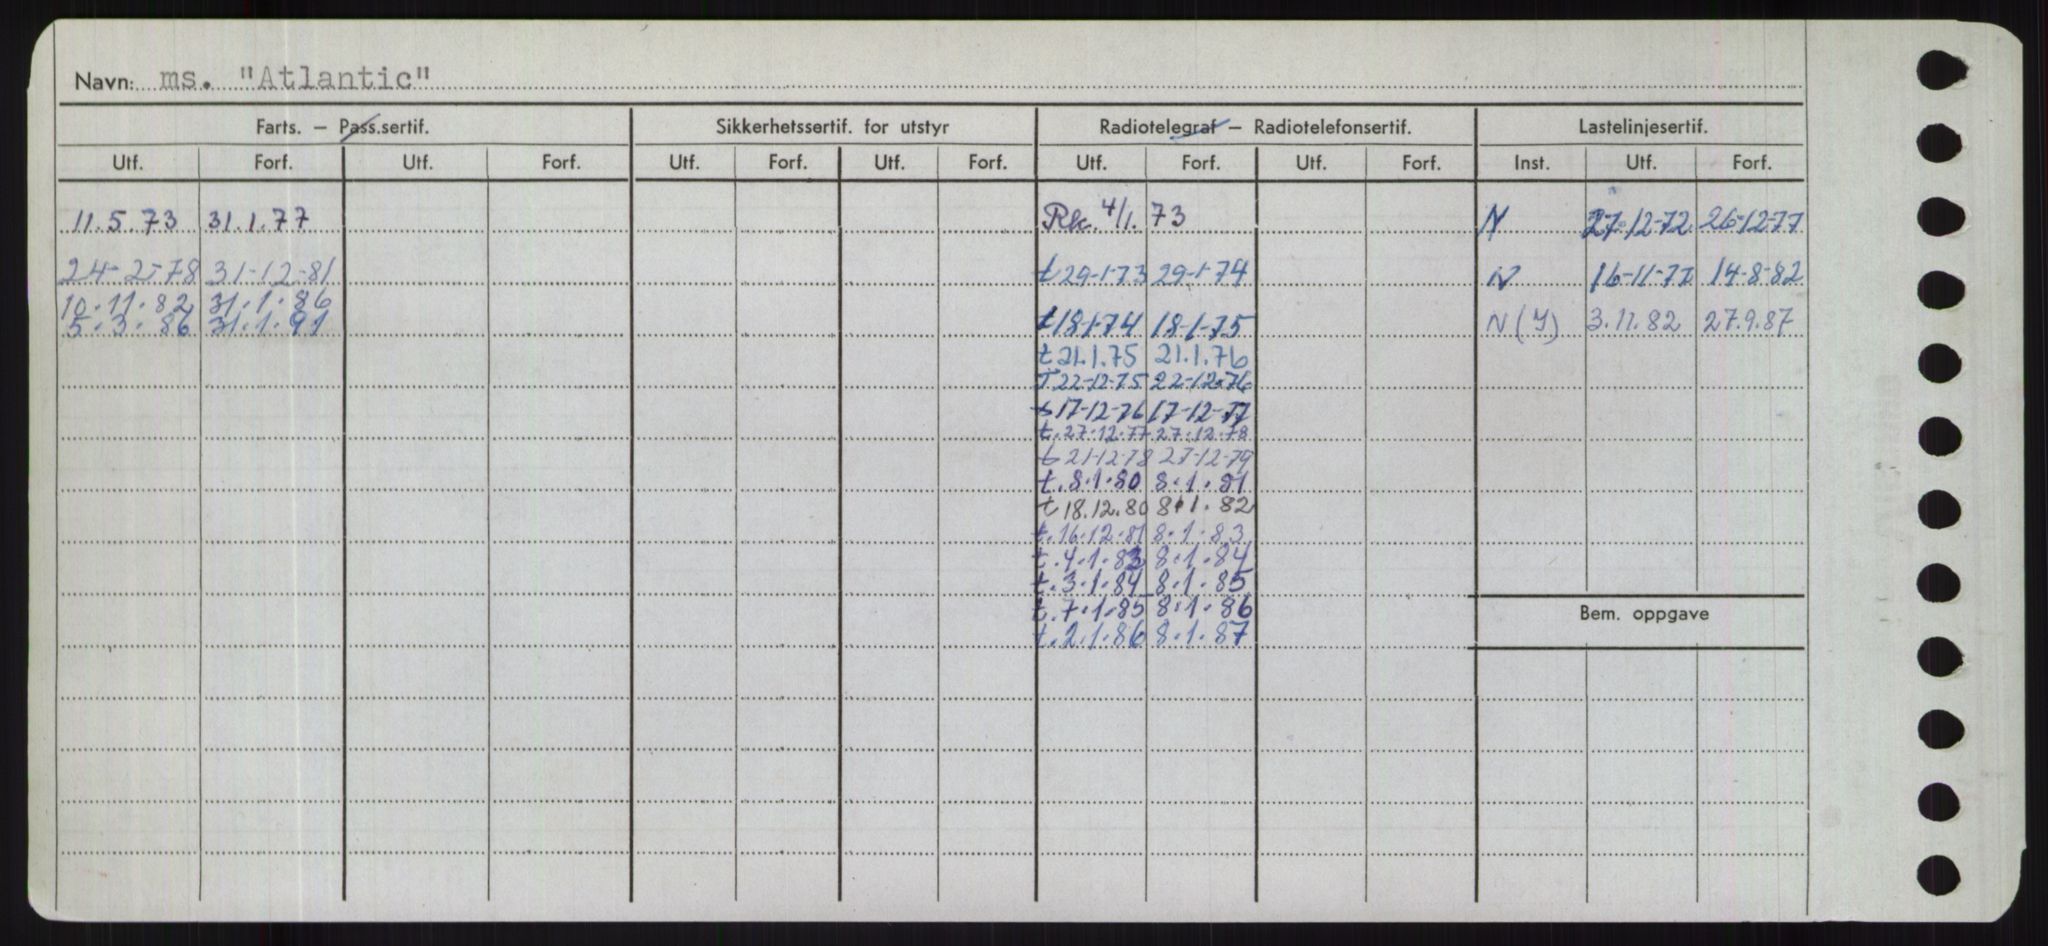 Navn: ms. "Atlantic"
Farts. – Pass.sertif. Sikkerhetssertif. for utstyr Radiotelegraf – Radiotelefonsertif. Lastelinjesertif.
Utf. Forf. Utf. Forf. Utf. Forf. Utf. Forf. Utf. Forf. Utf. Forf. Inst. Utf. Forf.
11.5.73 31.1.77 Rk. 4/1. 73 N 27-12-72 26-12-77
24-2-78 31-12-81 t 29-1-73 29-1-74 N 16-11-77 14-8-82
10.11.82 31.1.86
5.3.86 31.1.91 t 18-1-74 18-1-75 N (Y) 3.11.82 27.9.87
t 21.1.75 21.1.76
T 22-12-75 22-12-76
t 17-12-76 17-12-77
t. 27.12.77 27.12.78
t 21-12-78 27-12-79
t. 8.1.80 8.1.81
t 18.12.80 8.1.82
t. 16.12.81 8.1.83
t. 4.1.83 8.1.84
t. 3.1.84 8.1.85
t. 7.1.85 8.1.86
t. 2.1.86 8.1.87
Bem. oppgave